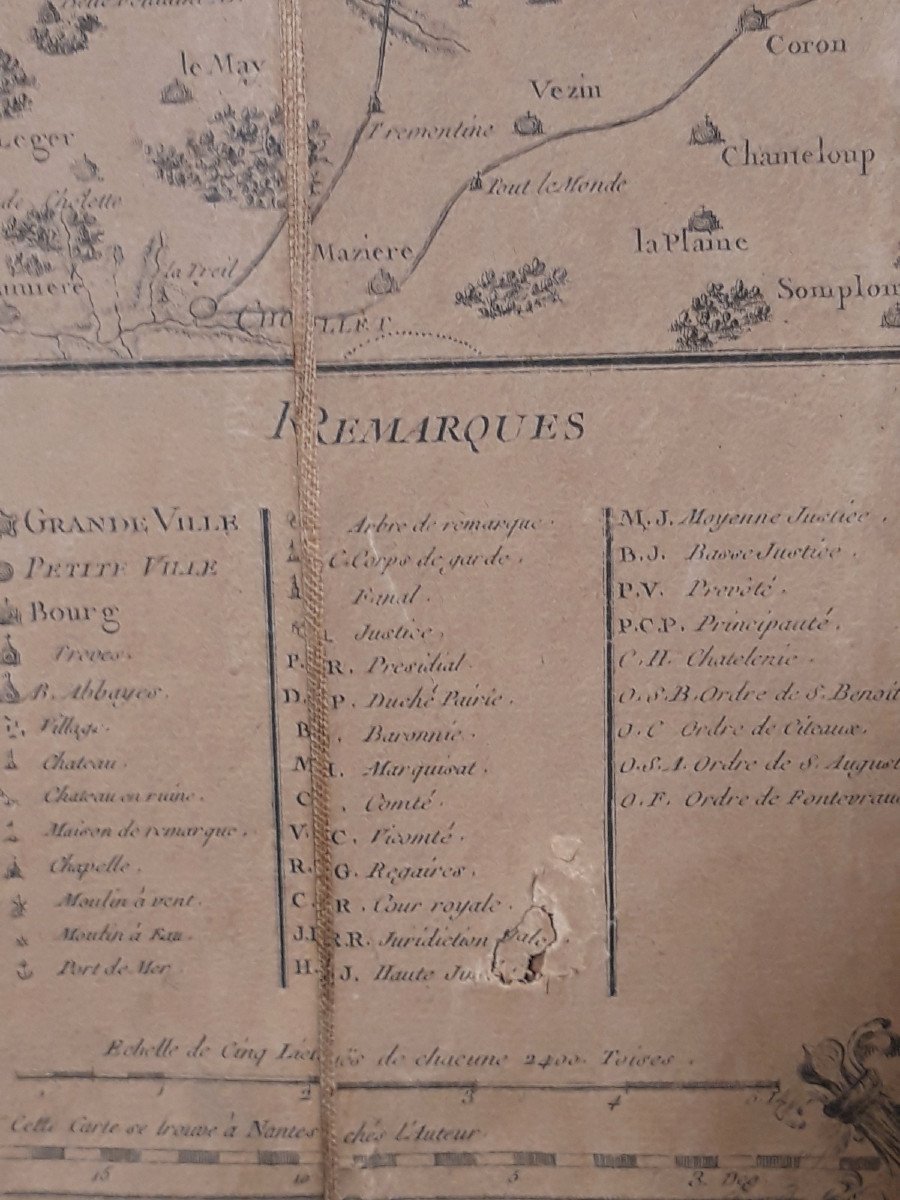 le May
Coron
Vezin
Tremontine
Leger
Chanteloup
de Cholette
Tout le Monde
la Plaine
Maziere
la Treil
Somplon
CHOLLET
REMARQUES
GRANDE VILLE
PETITE VILLE
Bourg
Treves.
B. Abbayes.
Village.
Chateau.
Chateau en ruine.
Maison de remarque.
Chapelle.
Moulin à vent.
Moulin à Eau.
Port de Mer
Arbre de remarque.
C. Corps de garde.
Fanal.
Justice.
P. R. Presidial.
D. P. Duché Pairie.
B. Baronnie.
M. Marquisat.
C. Comté.
V. C. Vicomté.
R. G. Regaires.
C. R. Cour royale.
J. R.R. Juridiction
H. J. Haute
M. J. Moyenne Justice.
B. J. Basse Justice.
P. V. Prevôté.
P.C.P. Principauté.
C. H. Chatelenie.
O.S.B. Ordre de S. Benoit
O.C Ordre de Citeaux.
O.S.A. Ordre de S. August
O.F. Ordre de Fontevrau
Echelle de Cinq Lieuës de chacune 2400. Toises.
1 2 3 4
Cette Carte se trouve à Nantes chés l'Auteur.
15 10 5